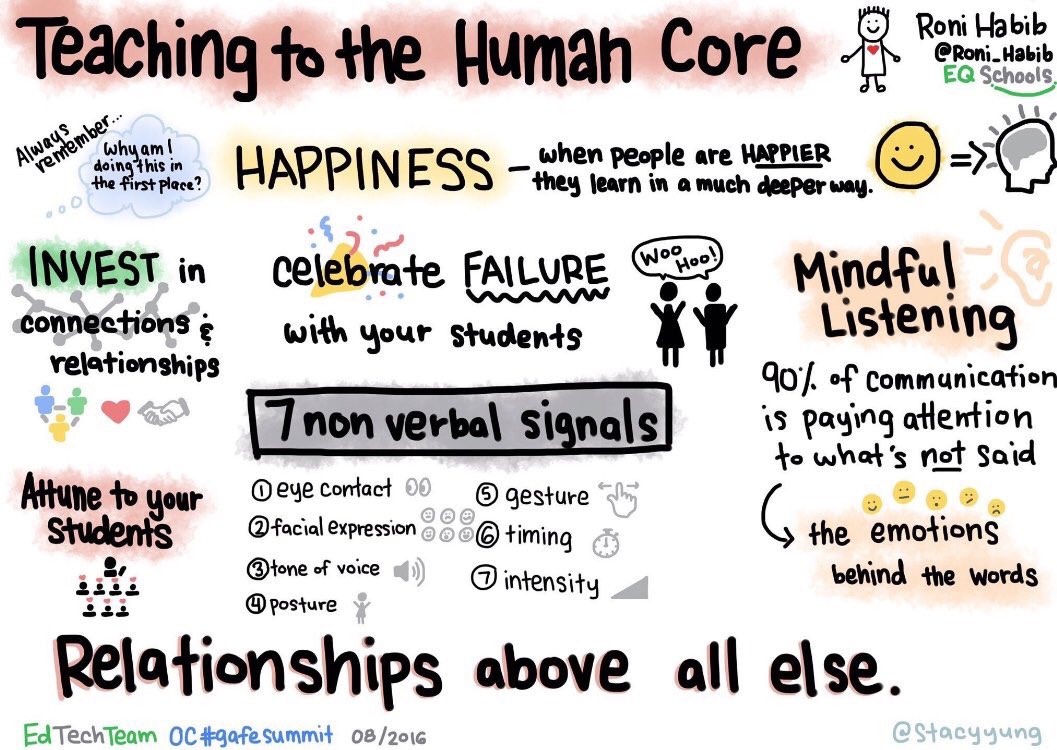 Teaching to the Human Core
Roni Habib
@Roni_Habib
EQ Schools
Always
remember...
Why am I
doing this in
the first place?
HAPPINESS – when people are HAPPIER
they learn in a much deeper way.
=>
INVEST in
connections &
relationships
celebrate FAILURE
with your students
Woo
Hoo!
Mindful
Listening
90% of communication
is paying attention
to what's not said
the emotions
behind the words
7 non verbal signals
① eye contact
② facial expression
③ tone of voice
④ posture
⑤ gesture
⑥ timing
⑦ intensity
Attune to your
Students
Relationships above all else.
EdTechTeam OC#gafesummit 08/2016
@Stacyyung